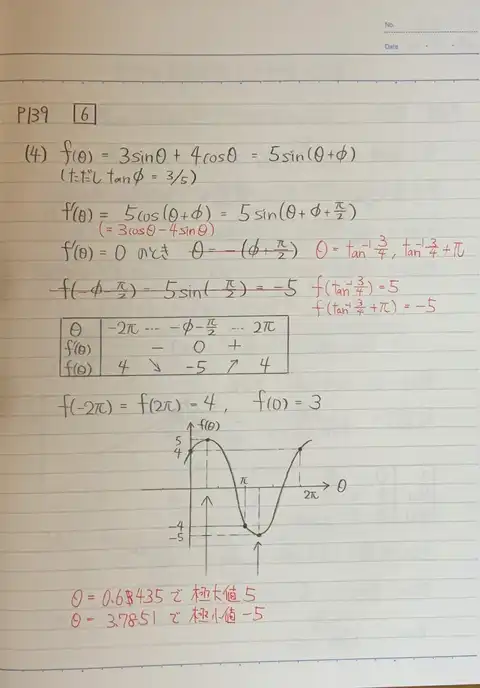 No.
Date
P139 6
(4) f(θ) = 3sinθ + 4cosθ = 5sin(θ+φ)
(ただし tanφ = 3/5)
f'(θ) = 5cos(θ+φ) = 5sin(θ+φ+π/2)
(= 3cosθ-4sinθ)
f'(θ) = 0 のとき θ = -(φ+π/2) θ = tan⁻¹ 3/4, tan⁻¹ 3/4 + π
f(-φ-π/2) = 5sin(-π/2) = -5 f(tan⁻¹ 3/4) = 5
f(tan⁻¹ 3/4 + π) = -5
θ -2π … -φ-π/2 … 2π
f'(θ) - 0 +
f(θ) 4 ↘ -5 ↗ 4
f(-2π) = f(2π) = 4, f(0) = 3
f(θ)
5
4
π
2π
θ
-4
-5
θ = 0.63435 で 極大値 5
θ = 3.7851 で 極小値 -5